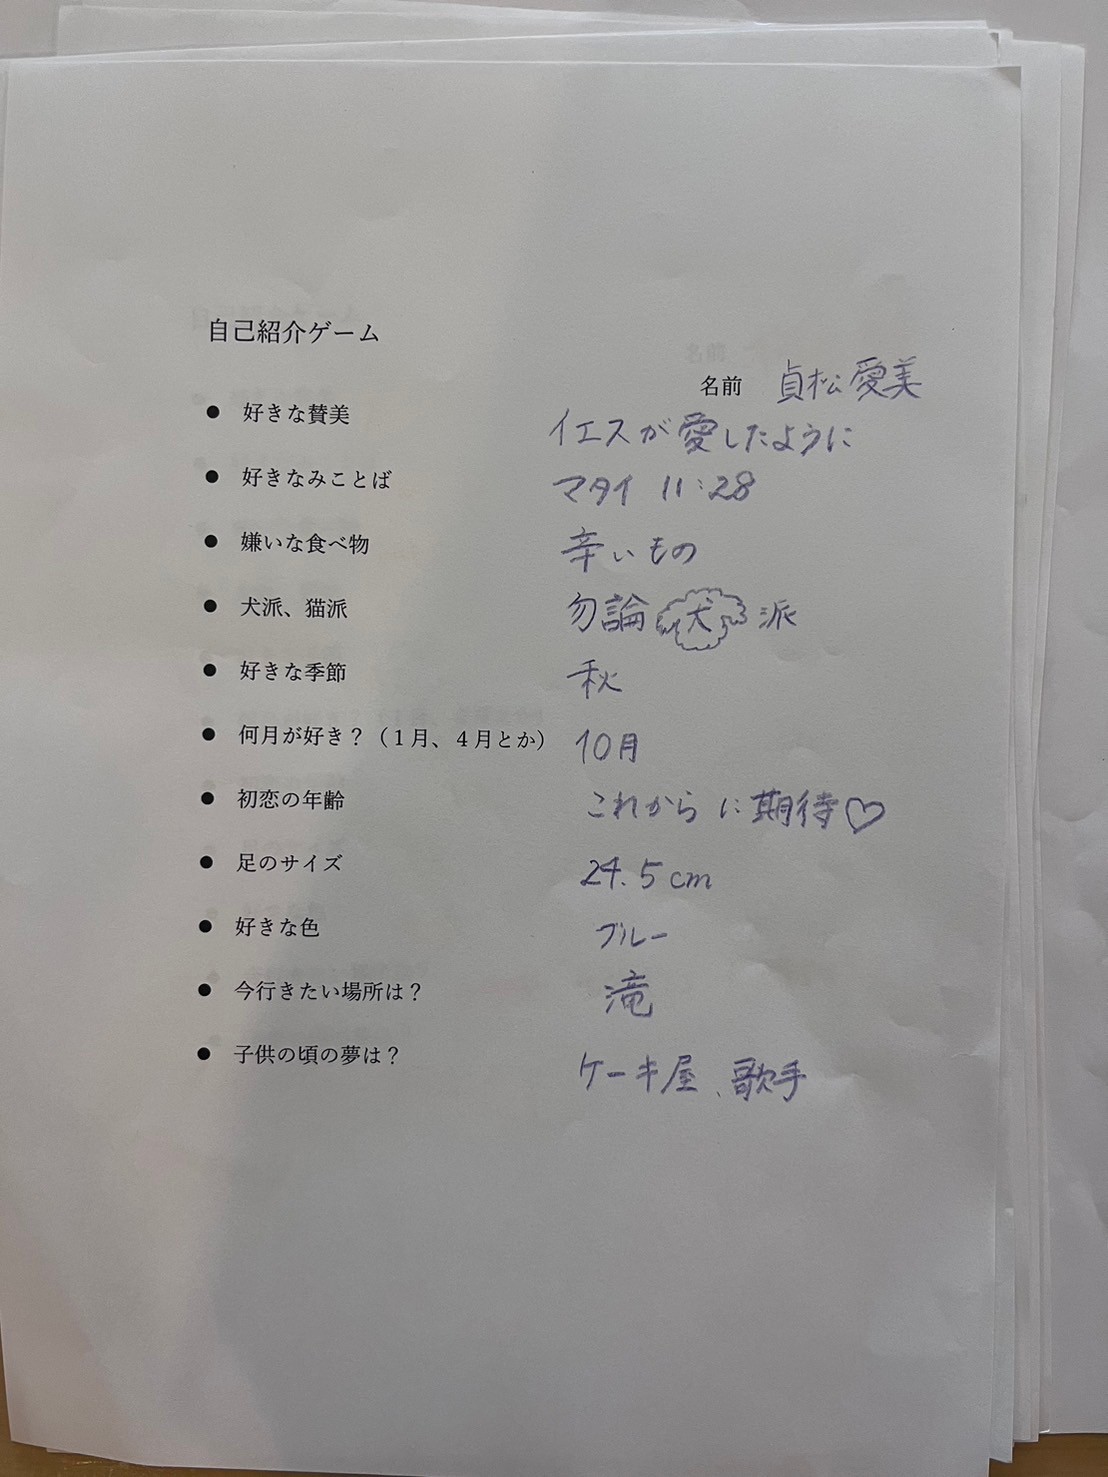 自己紹介ゲーム
名前 貞松愛美
● 好きな賛美 イエスが愛したように
● 好きなみことば マタイ 11:28
● 嫌いな食べ物 辛いもの
● 犬派、猫派 勿論 犬 派
● 好きな季節 秋
● 何月が好き？（１月、４月とか） 10月
● 初恋の年齢 これからに期待♡
● 足のサイズ 24.5cm
● 好きな色 ブルー
● 今行きたい場所は？ 滝
● 子供の頃の夢は？ ケーキ屋、歌手